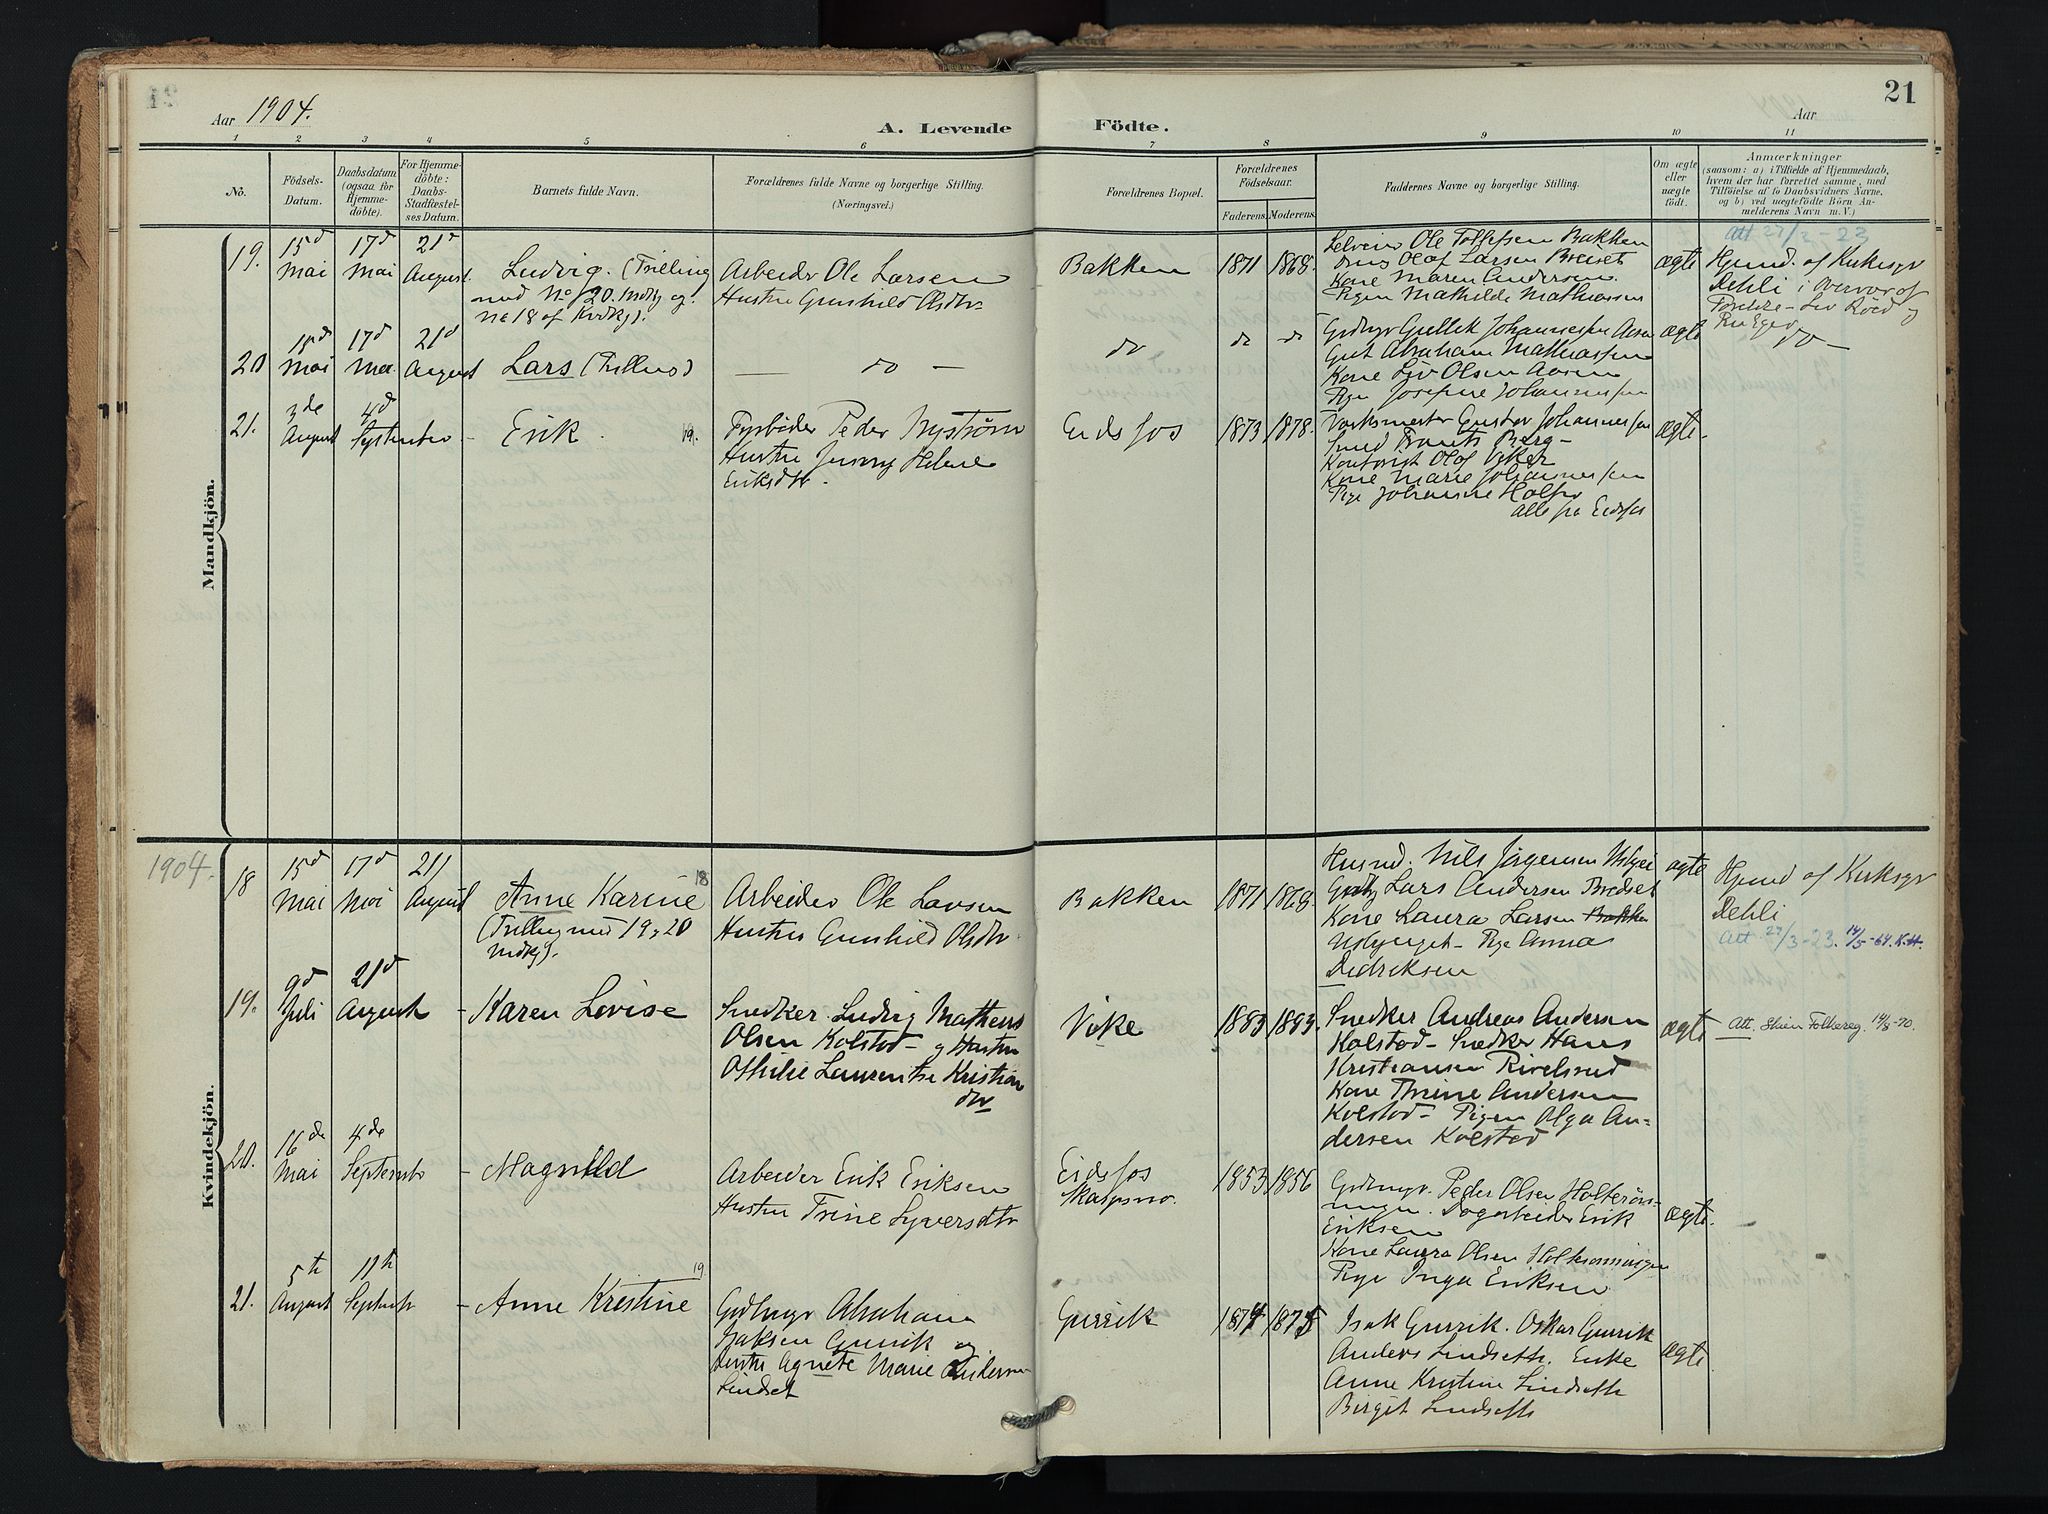 Aar 1904.
A. Levende
Födte.
Aar
21
1 2 3 4 5 6 7 8 9 10 11
No.
Födsels-
Datum.
Daabsdatum
(ogsaa for
Hjemme-
döbte).
For Hjemme-
döbte:
Daabs-
Stadfæstel-
ses Datum.
Barnets fulde Navn.
Forældrenes fulde Navne og borgerlige Stilling.
(Næringsvei.)
Forældrenes Bopæl.
Forældrenes
Födselsaar.
Faderens. Moderens.
Faddernes Navne og borgerlige Stilling.
Om ægte
eller
uægte
födt.
Anmærkninger
(saasom: a) i Tilfælde af Hjemmedaab,
hvem der har forrettet samme, med
Tilföielse af to Daabsvidners Navne,
og b) ved uægtefödte Börn An-
melderens Navn m. V.)
Mandkjön.
19.
15d
Mai
17d
Mai
21d
August.
Ludvig. (Trilling
med No 20. Mdkj og
No 18 af Kvdkj).
Arbeider Ole Larsen
Hustru Gunhild Olsdtr
Bakken
1871
1868.
Ole Tollefsen Bakken
Olaf Larsen
Kone Maren Andersen
Pigen Mathilde Mathiassen
ægte
Att 27/3-23
Hjemd. af Kirkesgr
Dehli i Overvær af
20
15d
Mai
17d
Mai
21d
August
Lars (Trilling)
— do —
do
do
do
Gullik Johannesen Aasen
Abraham Mathiassen
Kone Liv Olsen Aasen
Pige Josefine Johannessen
ægte
do —
21.
3de
August
4d
September
-
Erik.
19.
Fyrbøder Peder Nystrøm
Hustru Jenny Helene
Eriksdtr.
Eidsfos
1873
1878.
Værksmester Gustav Johannessen
Smed Frants Berg-
Kontorist Olaf Viker
Kone Marie Johannessen
Pige Johanne Holtn
Alle fra Eidsfos
ægte.
1904.
Kvindekjön.
18
15d
Mai
17d
Mai
21d
August
Anne Karine
18
(Trilling med 19, 20
Mdkj).
Arbeider Ole Larsen
Hustru Gunhild Olsdtr
Bakken
1871
1868.
Husmd. Nils Jörgensen
Lars Andersen Bredset
Kone Laura Larsen Bakken
Pige Anna
Didriksen
ægte
Hjemd af Kirksgr
Dehli
Att. 27/3-23. 14/5-64. K.H.
19.
9d
Juli
21d
August
-
Karen Lovise
Snedker Ludvig Mathens
Olsen Kolstad- og Hustru
Othilie Laurentse Kristian
dtr
Vike
1883
1883.
Snedker Andreas Andersen
Kolstad- Snedker Hans
Kristiansen Rivelsrud
Kone Thrine Andersen
Kolstad- Pigen Olga An-
dersen Kolstad
ægte
Att. Skien Folkereg. 14/8-70.
20.
16de
Mai
4de
September
-
Magnhild
Arbeider Erik Eriksen
Hustru Trine Syversdtr
Eidsfos
1853
1856
Peder Olsen Holterøn-
ningen. Dagarbeider Erik
Eriksen
Kone Laura Olsen Holterønningen
Pige Inga Eriksen
ægte.
21.
5te
August
11te
September
-
Anne Kristine
19.
Gdbrugr Abraham
Isaksen Gurrik og
Hustru Agnete Marie Anderson
Lindset
Gurrik
1874
1875
Isak Gurrik. Oskar Gurrik
Anders Lindseth. Enke
Anne Kristine Lindseth
Birgit Lindseth
ægte